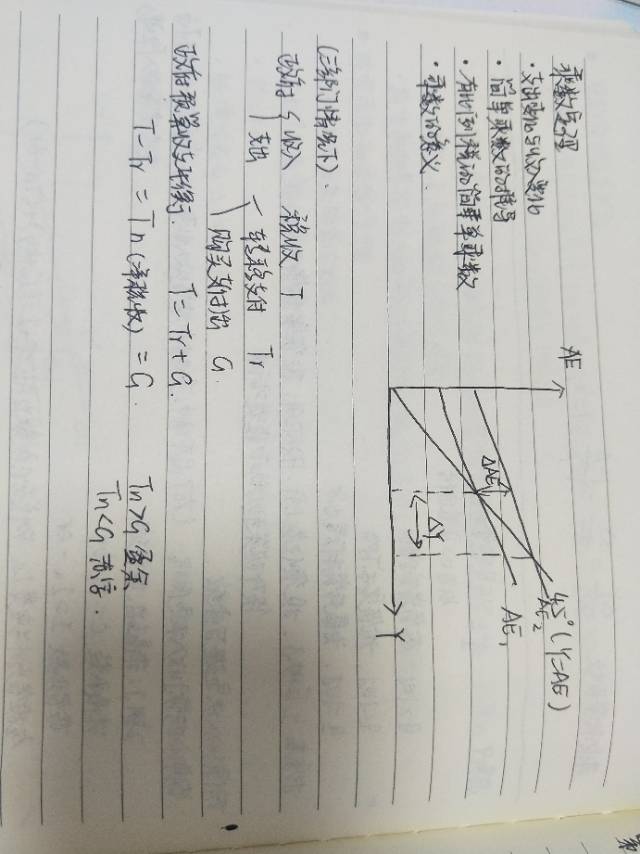 乘数原理
·支出变化与收入变化
·简单乘数的推导
·有比例税的简单乘数
·乘数的意义.
AE
45°(Y=AE)
AE2
AE1
ΔAE
ΔY
Y
(三部门情况下).
政府 收入 税收 T
支出 转移支付 Tr
购买支付 G.
政府预算收支平衡. T=Tr+G.
T-Tr=Tn(净税收)=G.
Tn>G 盈余
Tn<G 赤字.